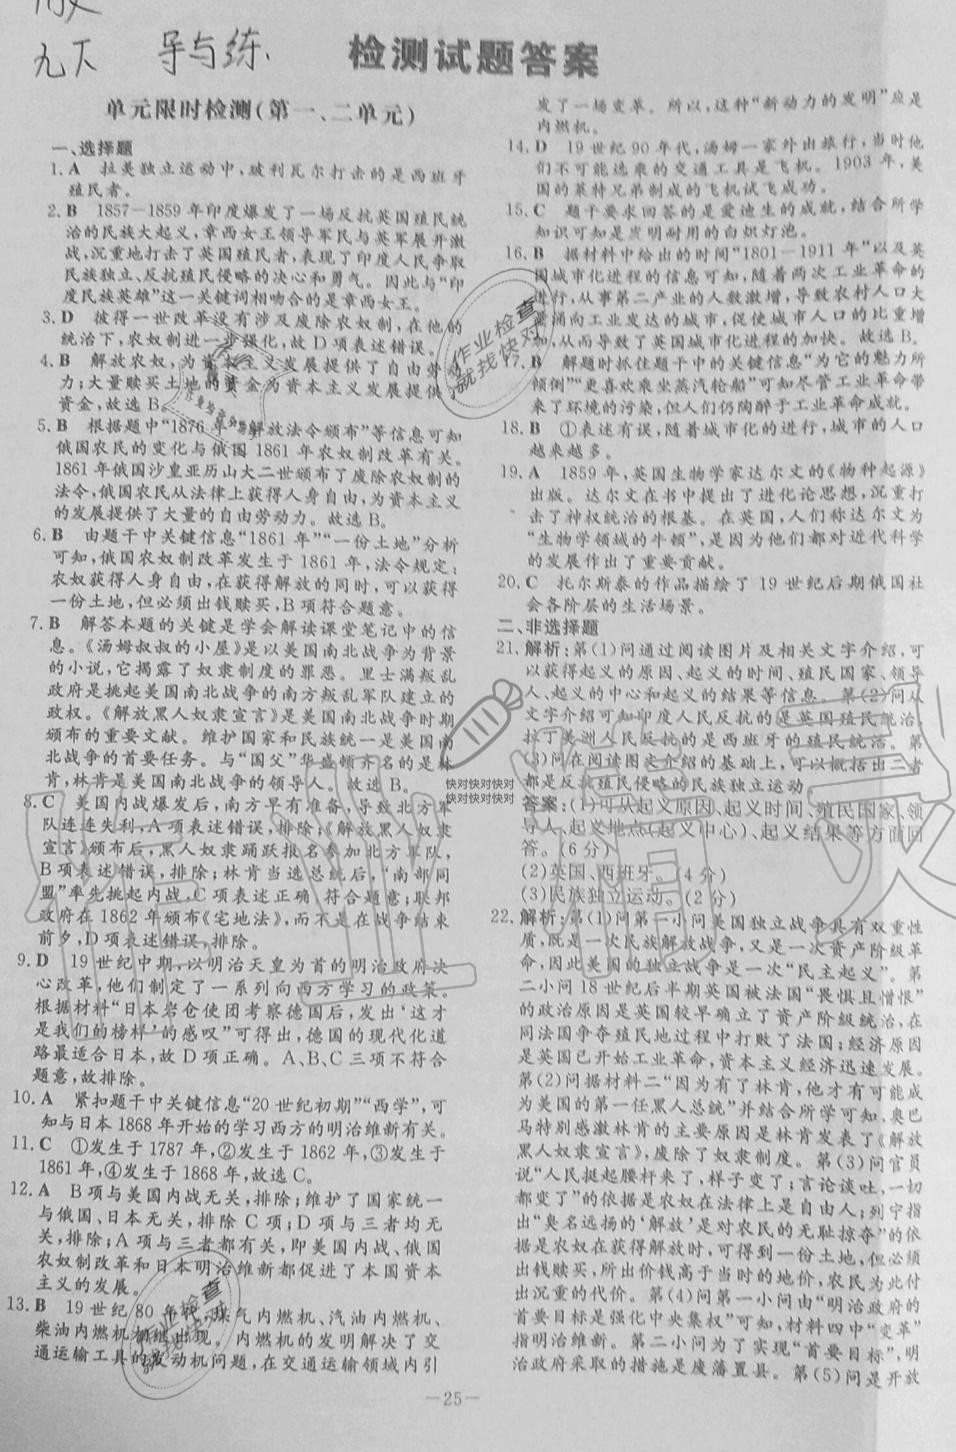 九下 导与练
检测试题答案
单元限时检测(第一、二单元)
一、选择题
1. A 拉美独立运动中,玻利瓦尔打击的是西班牙
殖民者。
2. B 1857-1859年印度爆发了一场反抗英国殖民统
治的民族大起义,章西女王领导军民与英军展开激
战,沉重地打击了英国殖民者,表现了印度人民争取
民族独立、反抗殖民侵略的决心和勇气。因此与“印
度民族英雄”这一关键词相吻合的是章西女王。
3. D 彼得一世改革没有涉及废除农奴制,在他的
统治下,农奴制进一步强化,故D项表述错误。
4. B 解放农奴,为资本主义发展提供了自由劳动
力;大量赎买土地的资金为资本主义发展提供了
资金,故选B。
5. B 根据题中“1876年“解放法令颁布”等信息可知
俄国农民的变化与俄国1861年农奴制改革有关。
1861年俄国沙皇亚历山大二世颁布了废除农奴制的
法令,俄国农民从法律上获得人身自由,为资本主义
的发展提供了大量的自由劳动力。故选B。
6. B 由题干中关键信息“1861年”“一份土地”分析
可知,俄国农奴制改革发生于1861年,法令规定:
农奴获得人身自由,在获得解放的同时,可以获得
一份土地,但必须出钱赎买,B项符合题意。
7. B 解答本题的关键是学会解读课堂笔记中的信
息。《汤姆叔叔的小屋》是以美国南北战争为背景
的小说,它揭露了奴隶制度的罪恶。里士满叛乱
政府是挑起美国南北战争的南方叛乱军队建立的
政权。《解放黑人奴隶宣言》是美国南北战争时期
颁布的重要文献。维护国家和民族统一是美国南
北战争的首要任务。与“国父”华盛顿齐名的是林
肯,林肯是美国南北战争的领导人。故选B。
8. C 美国内战爆发后,南方早有准备,导致北方军
队连连失利,A项表述错误,排除;《解放黑人奴隶
宣言》颁布后,黑人奴隶踊跃报名参加北方军队,
B项表述错误,排除;林肯当选总统后,“南部同
盟”率先挑起内战,C项表述正确 符合题意;联邦
政府在1862年颁布《宅地法》,而不是在战争结束
前夕,D项表述错误,排除。
9. D 19世纪中期,以明治天皇为首的明治政府决
心改革,他们制定了一系列向西方学习的政策。
根据材料“日本岩仓使团考察德国后,发出‘这才
是我们的榜样’的感叹”可得出,德国的现代化道
路最适合日本,故D项正确。A、B、C三项不符合
题意,故排除。
10. A 紧扣题干中关键信息“20世纪初期”“西学”,可
知与日本1868年开始的学习西方的明治维新有关。
11. C ①发生于1787年,②发生于1862年,③发生于
1861年,④发生于1868年,故选C。
12. A B项与美国内战无关,排除;维护了国家统一
与俄国、日本无关,排除C项;D项与三者均无
关,排除;A项与三者都有关,即美国内战、俄国
农奴制改革和日本明治维新都促进了本国资本
主义的发展。
13. B 19世纪80年代,煤气内燃机、汽油内燃机、
柴油内燃机相继出现。内燃机的发明解决了交
通运输工具的发动机问题,在交通运输领域内引
发了一场变革。所以,这种“新动力的发明”应是
内燃机。
14. D 19世纪90年代,汤姆一家外出旅行,当时他
们不可能选乘的交通工具是飞机。1903年,美
国的莱特兄弟制成的飞机试飞成功。
15. C 题干要求回答的是爱迪生的成就,结合所学
知识可知是发明耐用的白炽灯泡。
16. B 据材料中给出的时间“1801-1911年”以及英
国城市化进程的信息可知,随着两次工业革命的
进行,从事第二产业的人数激增,导致农村人口大
量涌向工业发达的城市,促使城市人口的比重增
加,从而导致了英国城市化进程的加快。故选B。
17. B 解题时抓住题干中的关键信息“为它的魅力所
倾倒”“更喜欢乘坐蒸汽轮船”可知尽管工业革命带
来了环境的污染,但人们仍陶醉于工业革命成就。
18. B ①表述有误,随着城市化的进行,城市的人口
越来越多。
19. A 1859年,英国生物学家达尔文的《物种起源》
出版。达尔文在书中提出了进化论思想,沉重打
击了神权统治的根基。在英国,人们称达尔文为
“生物学领域的牛顿”,是因为他们都对近代科学
的发展作出了重要贡献。
20. C 托尔斯泰的作品描绘了19世纪后期俄国社
会各阶层的生活场景。
二、非选择题
21. 解析:第(1)问通过阅读图片及相关文字介绍,可
以获得起义的原因、起义的时间、殖民国家、领导
人、起义的中心和起义的结果等信息。第(2)问从
文字介绍可知印度人民反抗的是英国殖民统治,
拉丁美洲人民反抗的是西班牙的殖民统治。第
(3)问在阅读图文介绍的基础上,可以概括出二者
都是反抗殖民侵略的民族独立运动。
答案:(1)可从起义原因、起义时间、殖民国家、领
导人、起义地点(起义中心)、起义结果等方面回
答。(6分)
(2)英国、西班牙。(4分)
(3)民族独立运动。(2分)
22. 解析:第(1)问第一小问美国独立战争具有双重性
质,既是一次民族解放战争,又是一次资产阶级革
命,因此美国的独立战争是一次“民主起义”。第
二小问18世纪后半期英国被法国“畏惧且憎恨”
的政治原因是英国较早确立了资产阶级统治,在
同法国争夺殖民地过程中打败了法国;经济原因
是英国已开始工业革命,资本主义经济迅速发展。
第(2)问据材料二“因为有了林肯,他才有可能成
为美国的第一任黑人总统”并结合所学可知,奥巴
马特别感激林肯的主要原因是林肯发表了《解放
黑人奴隶宣言》,废除了奴隶制度。第(3)问官员
说“人民挺起腰杆来了,样子变了;言论谈吐,一切
都变了”的依据是农奴在法律上是自由人;列宁指
出“臭名远扬的‘解放’是对农民的无耻掠夺”的依
据是农奴在获得解放时,可得到一份土地,但必须
出钱赎买,所出价钱高于当时的地价,农民为此付
出沉重的代价。第(4)问第一小问由“明治政府的
首要目标是强化中央集权”可知,材料四中“变革”
指明治维新。第二小问为了实现“首要目标”,明
治政府采取的措施是废藩置县。第(5)问是开放
作业检查
就找快对
快对快对快对
快对快对快对
作业检查
就找快对
—25—